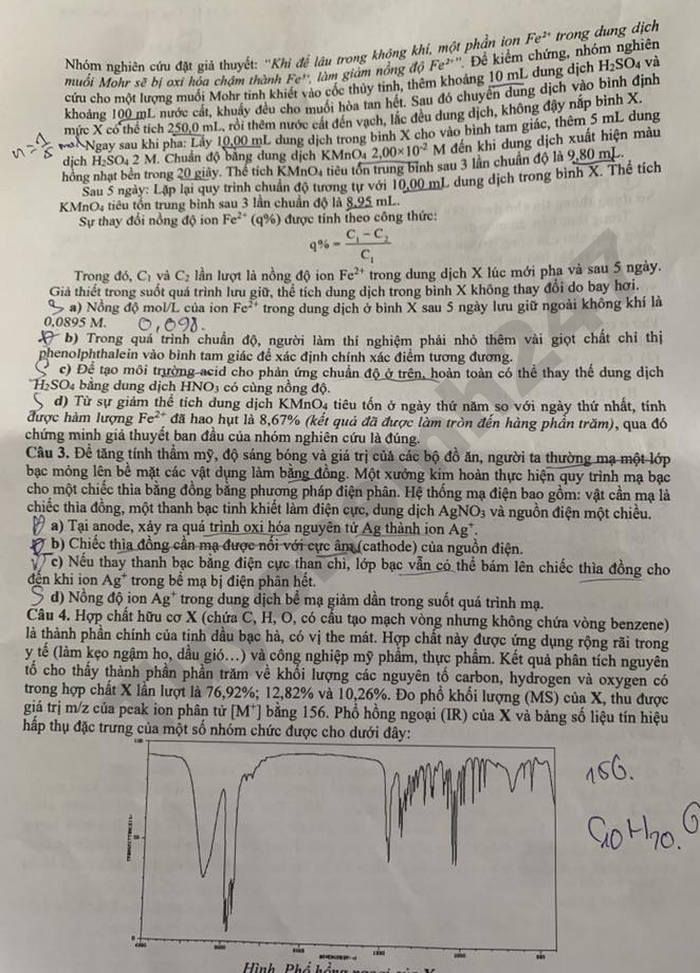 Nhóm nghiên cứu đặt giả thuyết: "Khi để lâu trong không khí, một phần ion Fe²⁺ trong dung dịch
muối Mohr sẽ bị oxi hóa chậm thành Fe³⁺, làm giảm nồng độ Fe²⁺". Để kiểm chứng, nhóm nghiên
cứu cho một lượng muối Mohr tinh khiết vào cốc thủy tinh, thêm khoảng 10 mL dung dịch H₂SO₄ và
khoảng 100 mL nước cất, khuấy đều cho muối hòa tan hết. Sau đó chuyển dung dịch vào bình định
mức X có thể tích 250,0 mL, rồi thêm nước cất đến vạch, lắc đều dung dịch, không đậy nắp bình X.
Ngay sau khi pha: Lấy 10,00 mL dung dịch trong bình X cho vào bình tam giác, thêm 5 mL dung
dịch H₂SO₄ 2 M. Chuẩn độ bằng dung dịch KMnO₄ 2,00×10⁻² M đến khi dung dịch xuất hiện màu
hồng nhạt bền trong 20 giây. Thể tích KMnO₄ tiêu tốn trung bình sau 3 lần chuẩn độ là 9,80 mL.
Sau 5 ngày: Lặp lại quy trình chuẩn độ tương tự với 10,00 mL dung dịch trong bình X. Thể tích
KMnO₄ tiêu tốn trung bình sau 3 lần chuẩn độ là 8,95 mL.
Sự thay đổi nồng độ ion Fe²⁺ (q%) được tính theo công thức:
q% = (C₁ − C₂)/C₁
Trong đó, C₁ và C₂ lần lượt là nồng độ ion Fe²⁺ trong dung dịch X lúc mới pha và sau 5 ngày.
Giả thiết trong suốt quá trình lưu giữ, thể tích dung dịch trong bình X không thay đổi do bay hơi.
S a) Nồng độ mol/L của ion Fe²⁺ trong dung dịch ở bình X sau 5 ngày lưu giữ ngoài không khí là
0,0895 M. 0,098.
b) Trong quá trình chuẩn độ, người làm thí nghiệm phải nhỏ thêm vài giọt chất chỉ thị
phenolphthalein vào bình tam giác để xác định chính xác điểm tương đương.
S c) Để tạo môi trường acid cho phản ứng chuẩn độ ở trên, hoàn toàn có thể thay thế dung dịch
H₂SO₄ bằng dung dịch HNO₃ có cùng nồng độ.
S d) Từ sự giảm thể tích dung dịch KMnO₄ tiêu tốn ở ngày thứ năm so với ngày thứ nhất, tính
được hàm lượng Fe²⁺ đã hao hụt là 8,67% (kết quả đã được làm tròn đến hàng phần trăm), qua đó
chứng minh giả thuyết ban đầu của nhóm nghiên cứu là đúng.
Câu 3. Để tăng tính thẩm mỹ, độ sáng bóng và giá trị của các bộ đồ ăn, người ta thường mạ một lớp
bạc mỏng lên bề mặt các vật dụng làm bằng đồng. Một xưởng kim hoàn thực hiện quy trình mạ bạc
cho một chiếc thìa bằng đồng bằng phương pháp điện phân. Hệ thống mạ điện bao gồm: vật cần mạ là
chiếc thìa đồng, một thanh bạc tinh khiết làm điện cực, dung dịch AgNO₃ và nguồn điện một chiều.
a) Tại anode, xảy ra quá trình oxi hóa nguyên tử Ag thành ion Ag⁺.
b) Chiếc thìa đồng cần mạ được nối với cực âm (cathode) của nguồn điện.
c) Nếu thay thanh bạc bằng điện cực than chì, lớp bạc vẫn có thể bám lên chiếc thìa đồng cho
đến khi ion Ag⁺ trong bể mạ bị điện phân hết.
S d) Nồng độ ion Ag⁺ trong dung dịch bể mạ giảm dần trong suốt quá trình mạ.
Câu 4. Hợp chất hữu cơ X (chứa C, H, O, có cấu tạo mạch vòng nhưng không chứa vòng benzene)
là thành phần chính của tinh dầu bạc hà, có vị the mát. Hợp chất này được ứng dụng rộng rãi trong
y tế (làm kẹo ngậm ho, dầu gió…) và công nghiệp mỹ phẩm, thực phẩm. Kết quả phân tích nguyên
tố cho thấy thành phần phần trăm về khối lượng các nguyên tố carbon, hydrogen và oxygen có
trong hợp chất X lần lượt là 76,92%; 12,82% và 10,26%. Đo phổ khối lượng (MS) của X, thu được
giá trị m/z của peak ion phân tử [M⁺] bằng 156. Phổ hồng ngoại (IR) của X và bảng số liệu tín hiệu
hấp thụ đặc trưng của một số nhóm chức được cho dưới đây:
156.
C₁₀H₂₀.O
Hình. Phổ hồng ngoại của X